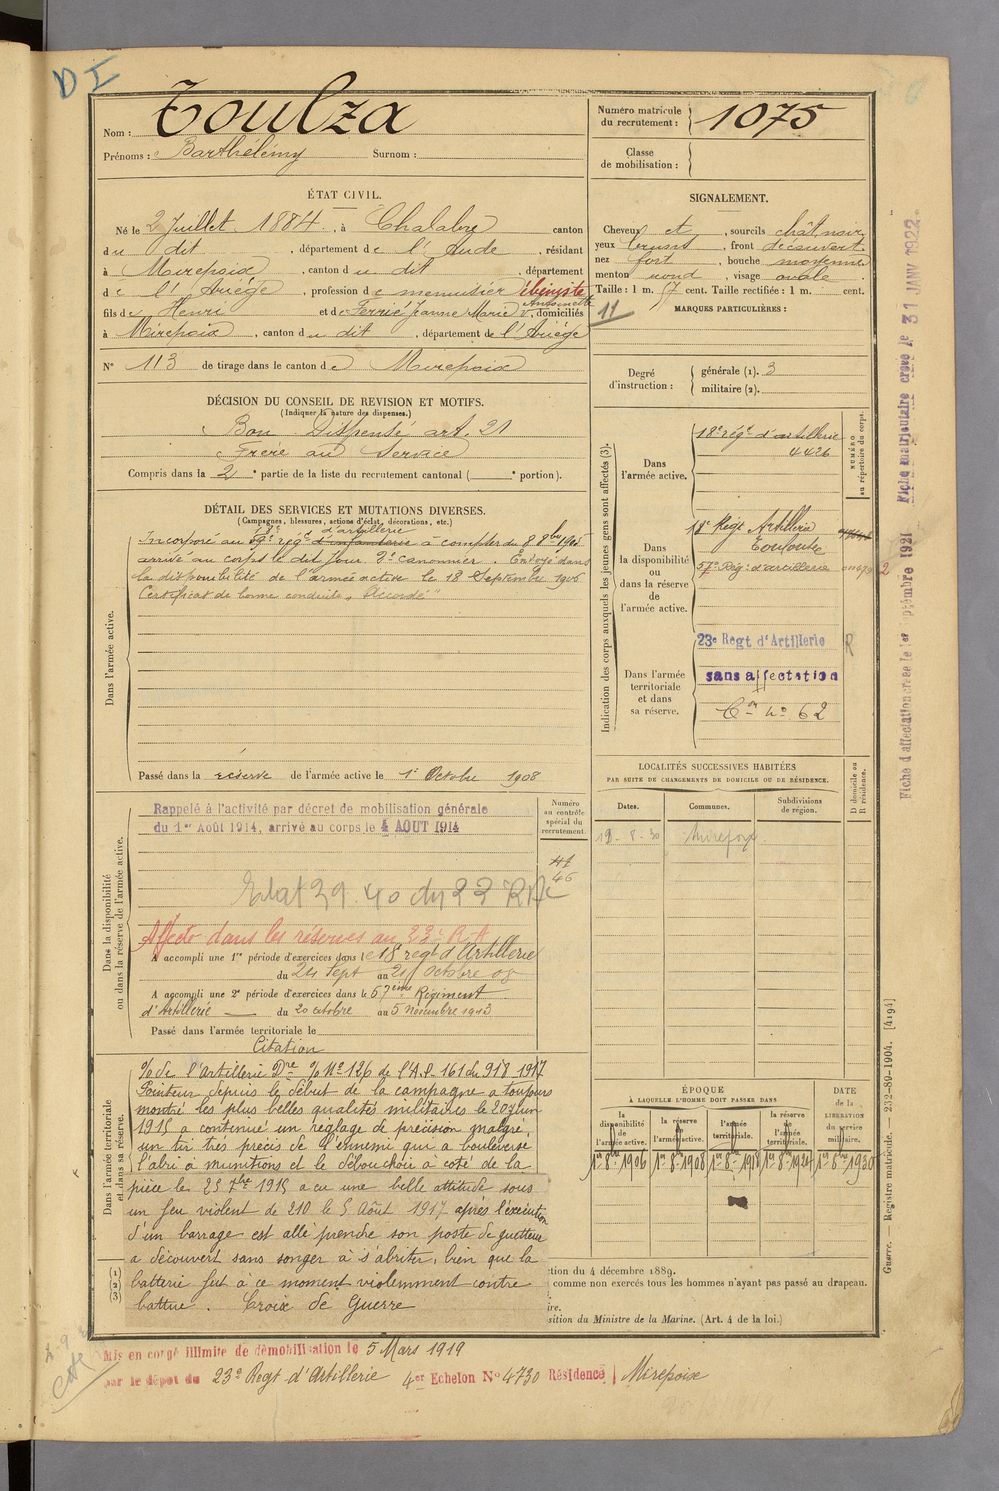 D I
Nom : Toulza
Prénoms : Barthélémy Surnom :
Numéro matricule du recrutement : 1075
Classe de mobilisation :
ÉTAT CIVIL.
Né le 2 Juillet 1884, à Chalabre canton
du dit, département de l'Aude, résidant
à Mirepoix, canton du dit, département
de l'Ariège, profession de menuisier ébéniste
fils de Henri et de Ferrié Jeanne Marie Antoinette, domiciliés
à Mirepoix, canton du dit, département de l'Ariège
N° 113 de tirage dans le canton de Mirepoix
DÉCISION DU CONSEIL DE REVISION ET MOTIFS.
(Indiquer la nature des dispenses.)
Bon Dispensé art. 21
Frère au Service
Compris dans la 2e partie de la liste du recrutement cantonal ( e portion).
SIGNALEMENT.
Cheveux et, sourcils chât noir
yeux bruns, front découvert
nez fort, bouche moyenne
menton rond, visage ovale
Taille : 1 m. 57 cent. Taille rectifiée : 1 m. cent.
11
MARQUES PARTICULIÈRES :
Degré d'instruction : générale (1). 3
militaire (2).
DÉTAIL DES SERVICES ET MUTATIONS DIVERSES.
(Campagnes, blessures, actions d'éclat, décorations, etc.)
18e d'artillerie
Incorporé au régt d'infanterie à compter du 8 8bre 1905
arrivé au corps le dit jour 2e canonnier. Envoyé dans
la disponibilité de l'armée active le 18 Septembre 1906
Certificat de bonne conduite "Accordé"
Dans l'armée active.
Passé dans la réserve de l'armée active le 1er Octobre 1908
Indication des corps auxquels les jeunes gens sont affectés (3).
NUMÉRO au répertoire du corps.
Dans l'armée active.
18e régt d'artillerie
4426
Dans la disponibilité ou dans la réserve de l'armée active.
18e Régt Artillerie
Toulouse
57e Rég: d'artillerie
23e Regt d'Artillerie R
Dans l'armée territoriale et dans sa réserve.
sans affectation
Con No 62
LOCALITÉS SUCCESSIVES HABITÉES
PAR SUITE DE CHANGEMENTS DE DOMICILE OU DE RÉSIDENCE.
D domicile ou R résidence.
Dates. Communes. Subdivisions de région.
19-8-30 Mirepoix
Dans la disponibilité ou dans la réserve de l'armée active.
Numéro au contrôle spécial du recrutement.
Rappelé à l'activité par décret de mobilisation générale
du 1er Août 1914, arrivé au corps le 4 AOUT 1914
46
Etat 39.40 du 23 RAC
Affecté dans les réserves au 23e R.A
A accompli une 1re période d'exercices dans le 18 regt d'Artillerie
du 24 Sept au 21 Octobre 08
A accompli une 2e période d'exercices dans le 57eme Régiment
d'Artillerie du 20 octobre au 5 novembre 1913
Passé dans l'armée territoriale le
Citation
Dans l'armée territoriale et dans sa réserve.
O/ de l'Artillerie Dre O/ No 126 de l'A.D. 161 du 9 18 1917
Pointeur depuis le début de la campagne a toujours
montré les plus belles qualités militaires le 20 juin
1915 a continué un réglage de précision malgré
un tir très précis de l'ennemi qui a bouleversé
l'abri à munitions et le débouchoir à coté de la
pièce le 25 7bre 1915 a eu une belle attitude sous
un feu violent de 210 le 5 Août 1917 après l'éxécution
d'un barrage est allé prendre son poste de guetteur
à découvert sans songer à s'abriter, bien que la
batterie fut à ce moment violemment contre
battue. Croix de Guerre
ÉPOQUE
À LAQUELLE L'HOMME DOIT PASSER DANS
la disponibilité de l'armée active. la réserve de l'armée active. l'armée territoriale. la réserve de l'armée territoriale.
DATE de la LIBÉRATION du service militaire.
1er 8bre 1906 1er 8bre 1908 1er 8bre 1918 1er 8bre 1924 1er 8bre 1930
(1)
(2)
(3)
tion du 4 décembre 1889.
comme non exercés tous les hommes n'ayant pas passé au drapeau.
ire.
sition du Ministre de la Marine. (Art. 4 de la loi.)
Mis en congé illimité de démobilisation le 5 Mars 1919
par le dépôt du 23e Regt d'Artillerie 4er Echelon No 4730 Résidence Mirepoix
Fiche d'affectation créée le 1er Septembre 1921
Fiche matriculaire créée le 31 JANV 1922
Guerre. — Registre matricule. — 232-89-1904. [4194]